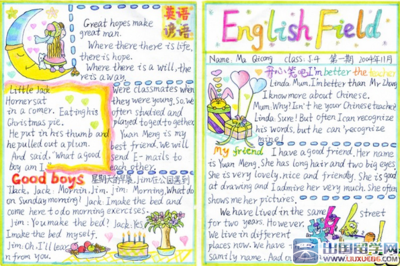 英语
谚语
Great hopes make
great man.
Where there there is life,
there is hope.
Where there is a will, the
re is a way.
Little Jack
Horner sat
in a corner. Eating his
Christmas pie.
He put in his thumb and
he pulled out a plum.
And said, "What a good
big am I
were classmates when
they were young. So, we
often studied and
played together.
Yuan Meng is my
best friend. We will
send E-mails to
each other.
Good boys
Jack: Jack. Morning, Jim. Jim: Morning. What do
on Sunday morning? Jack: I make the bed and
come here to do morning exercises.
Jim: You make the bed? Jack: Yes.
I make the bed myself.
Jim: Oh. I'll learn
n from you.
English Field
Name: Ma Qicong class: 5.4 第一期 2009年11月
开心笑吧 I'm better the teacher
Linda: Mum, I'm better than Mr Zhong
I know more about Chinese.
Mum: Why! Isn't he your Chinese teacher
Linda: Sure! But often I can recognize
his words, but he can't recognize
My friend I have a good friend. Her name
is Yuan Meng. She has long hair and two big eyes
She is very lovely, nice and friendly. She is good
at drawing and I admire her very much. She often
shows me her pictures.
We have lived in the same street
for two years. However,
We live in different
places now. We have
family name. And
出国留学网
WWW.LIUXUE86.COM